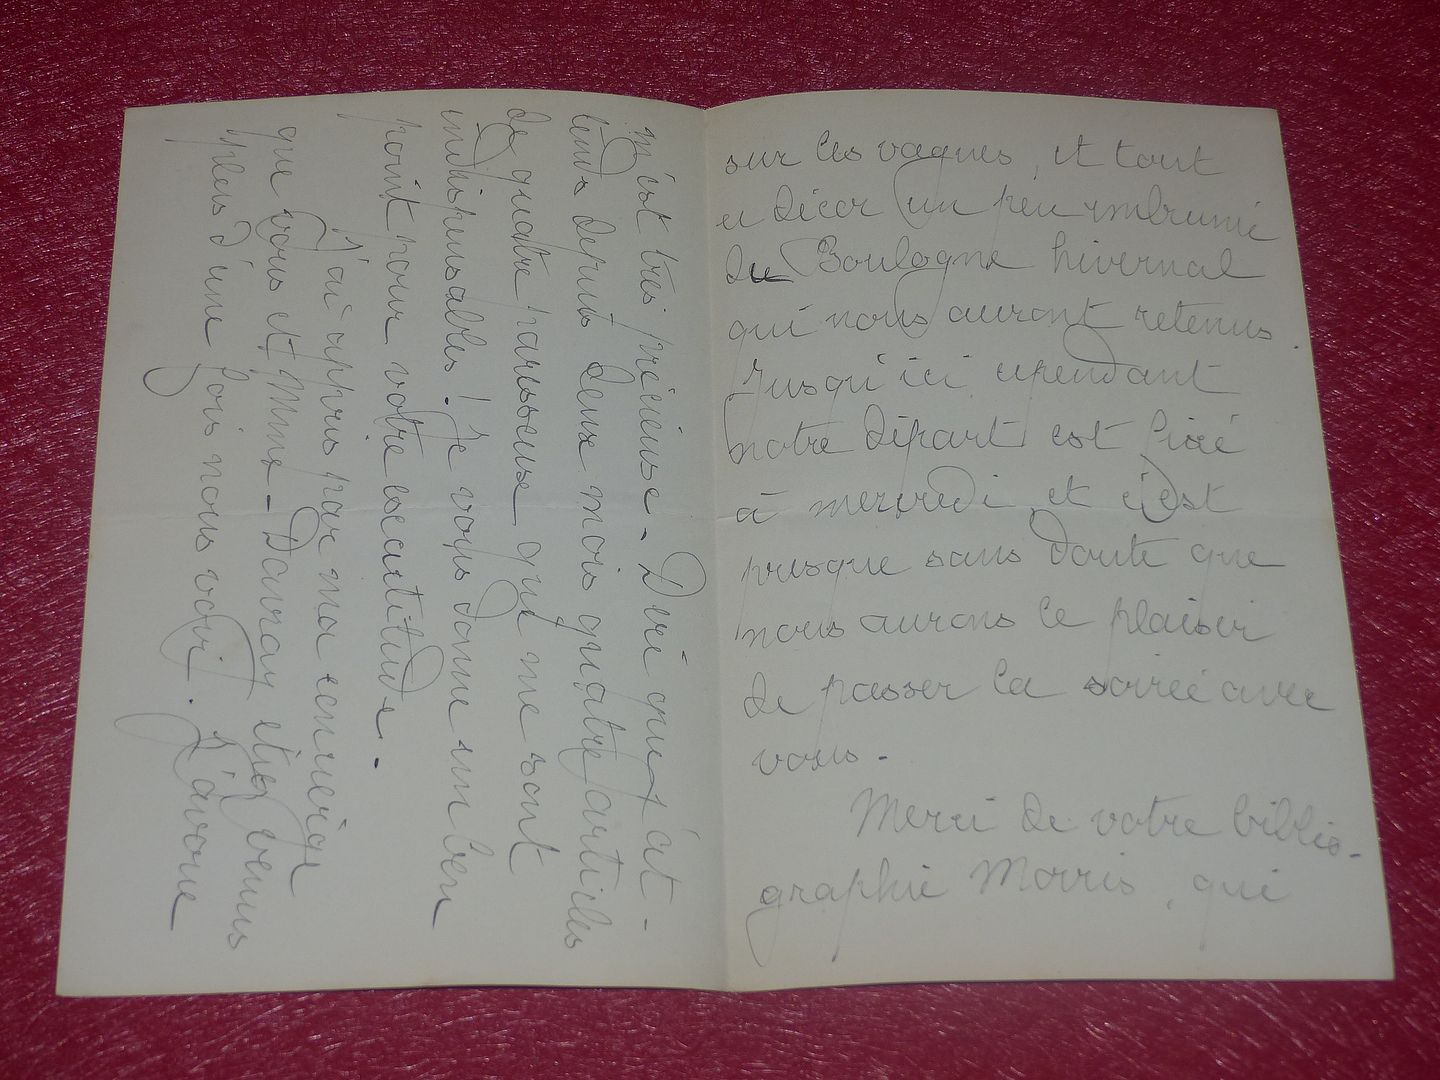 sur les vagues, et tout
ce décor un peu embrumé
du Boulogne hivernal
qui nous auront retenus.
Jusqu'ici cependant
notre départ est fixé
à mercredi, et c'est
presque sans doute que
nous aurons le plaisir
de passer la soirée avec
vous.
Merci de votre biblio-
graphie Morris, qui
m'est très précieuse. Dire que j'at-
tends depuis deux mois quatre articles
de quatre paresseux qui me sont
indispensables! Je vous donne un bon
point pour votre exactitude.
J'ai appris par ma concierge
que vous et Mme Davray étiez venus
plus d'une fois nous voir. J'avoue